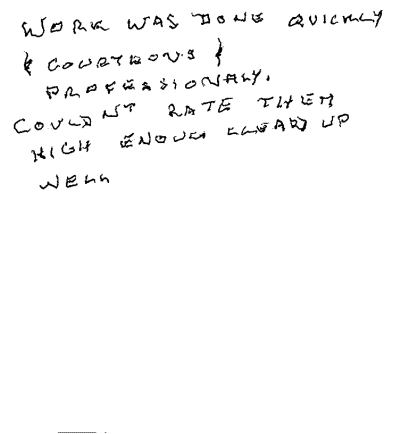 WORK WAS DONE QUICKLY
& COURTEOUS &
PROFESSIONALY.
COULD NT RATE THEM
HIGH ENOUGH CLEARD UP
WELL